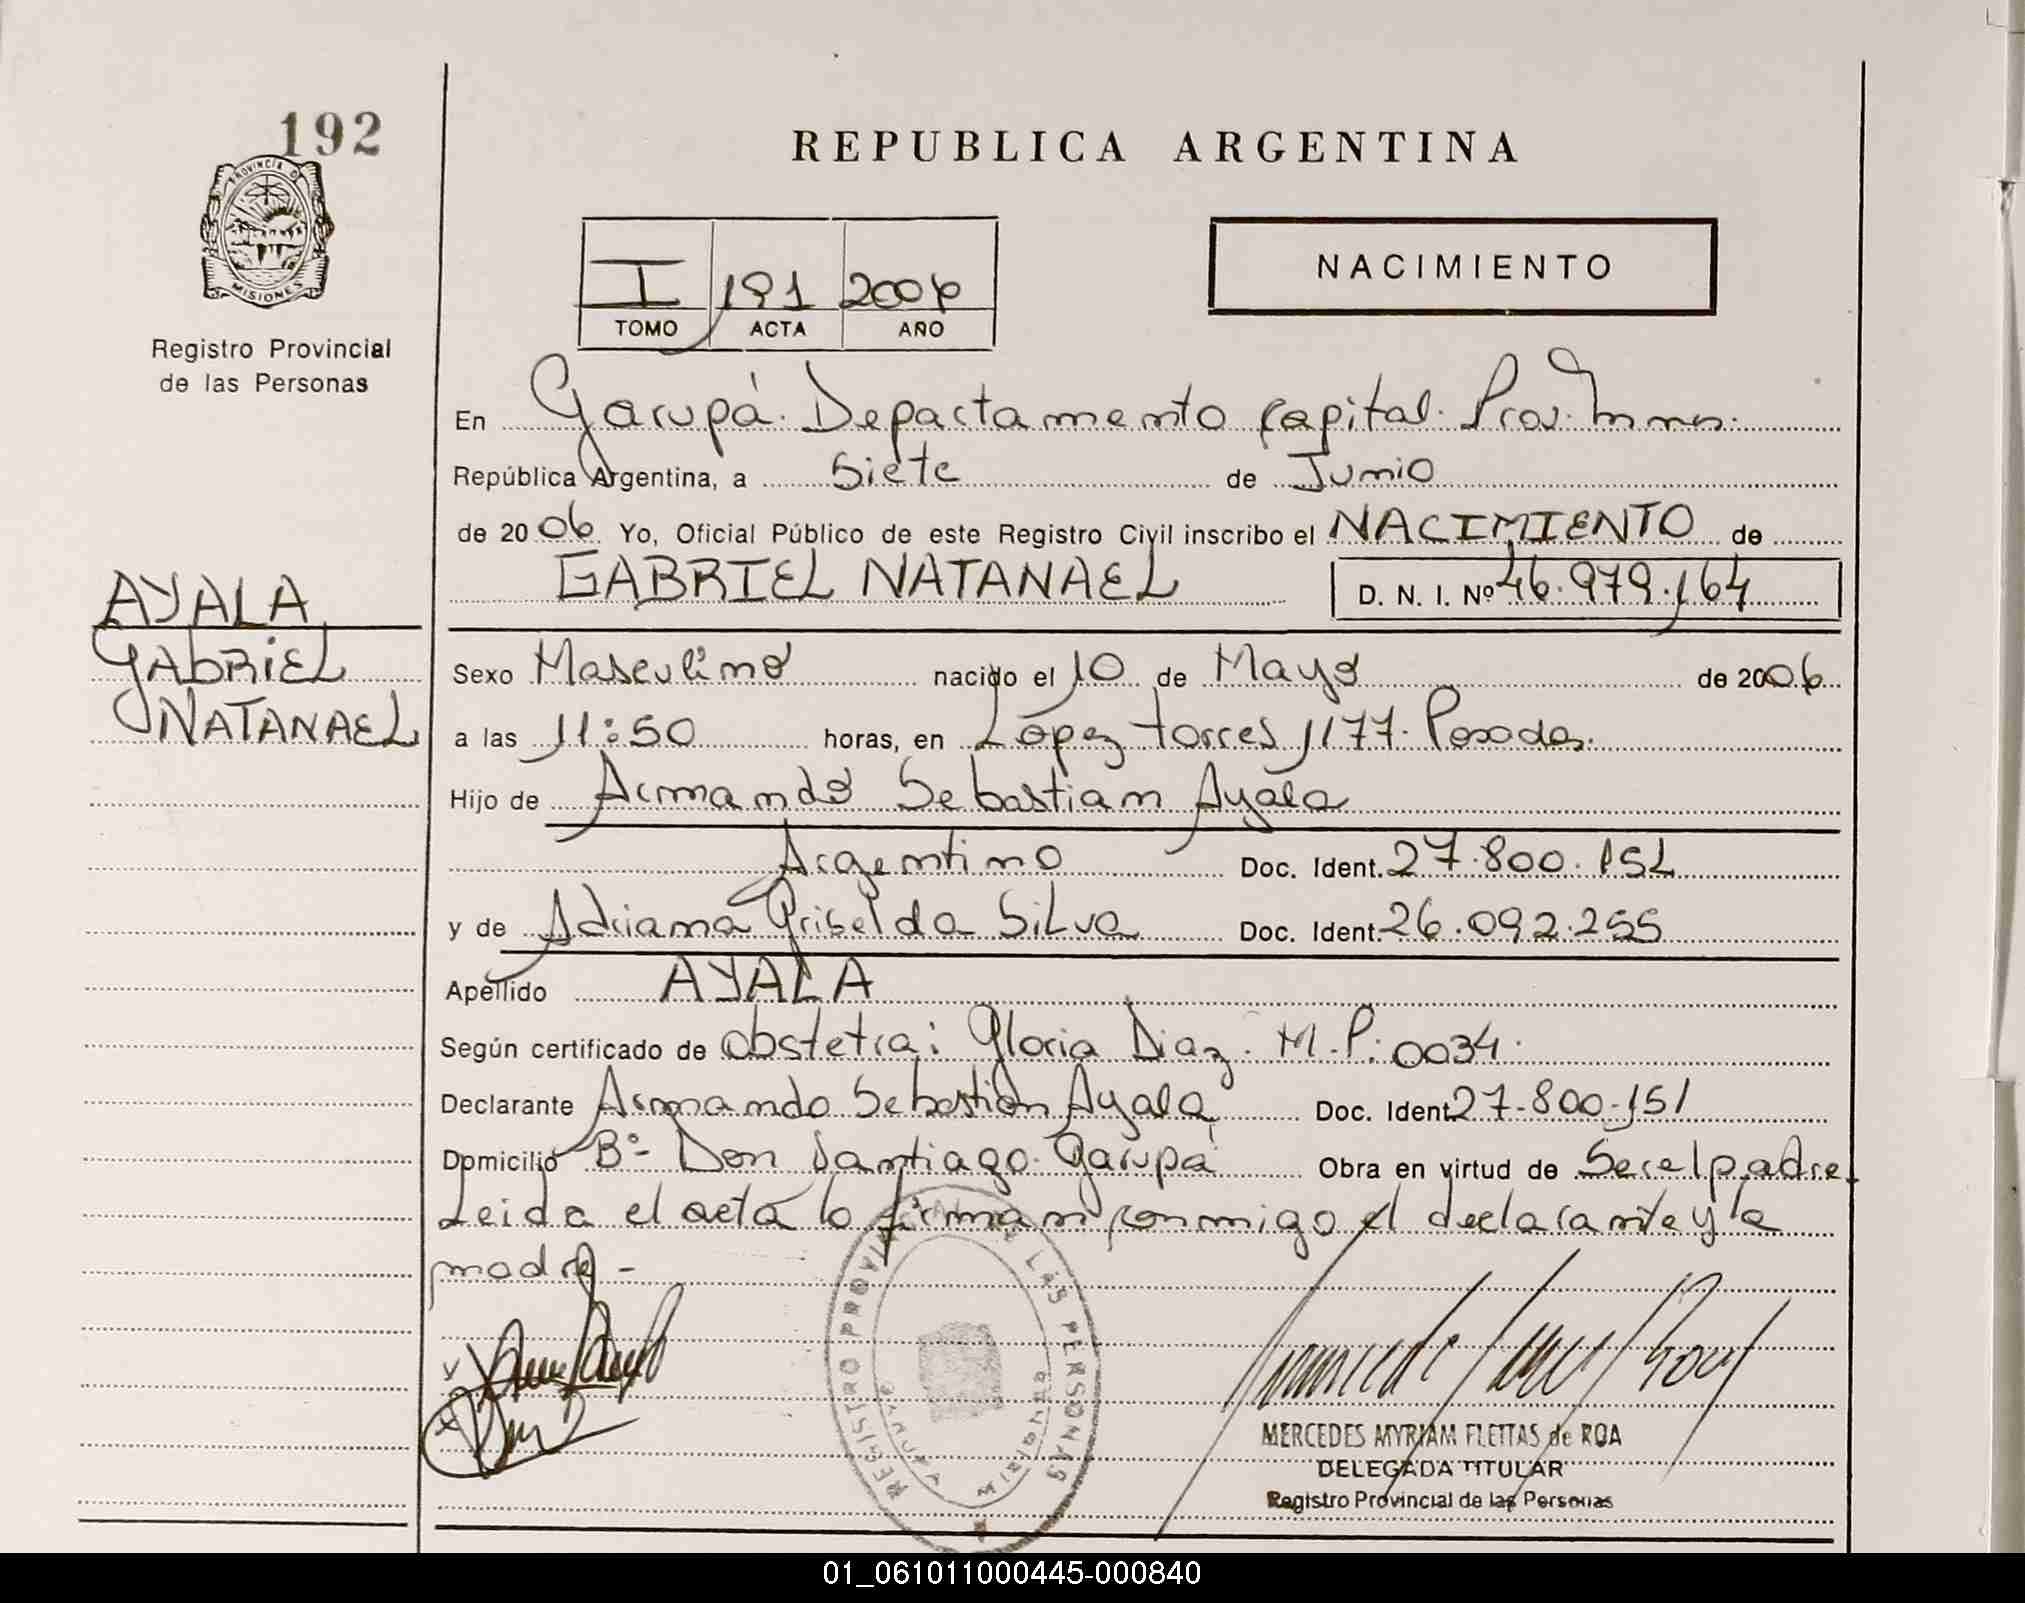 192
REPUBLICA ARGENTINA
PROVINCIA D
MISIONES
NACIMIENTO
I 191 2006
TOMO ACTA AÑO
Registro Provincial
de las Personas
En Garupá. Departamento Capital. Prov. Mnes.
República Argentina, a Siete de Junio
de 2006 Yo, Oficial Público de este Registro Civil inscribo el NACIMIENTO de
GABRIEL NATANAEL D. N. I. Nº 46.979.164
AYALA
GABRIEL
NATANAEL
Sexo Masculino nacido el 10 de Mayo de 2006
a las 11:50 horas, en López Torres 1177. Posadas.
Hijo de Armando Sebastian Ayala
Argentino Doc. Ident. 27.800.151
y de Adriana Griselda Silva Doc. Ident. 26.092.255
Apellido AYALA
Según certificado de Obstetra: Gloria Diaz. M.P: 0034.
Declarante Armando Sebastián Ayala Doc. Ident. 27.800.151
Domicilio Bº- Don Santiago. Garupá Obra en virtud de Ser el padre.
Leida el acta lo firman conmigo el declarante y la
madre -
REGISTRO PROVINCIAL DE LAS PERSONAS
MISIONES
MERCEDES MYRIAM FLEITAS de ROA
DELEGADA TITULAR
Registro Provincial de las Personas
01_061011000445-000840